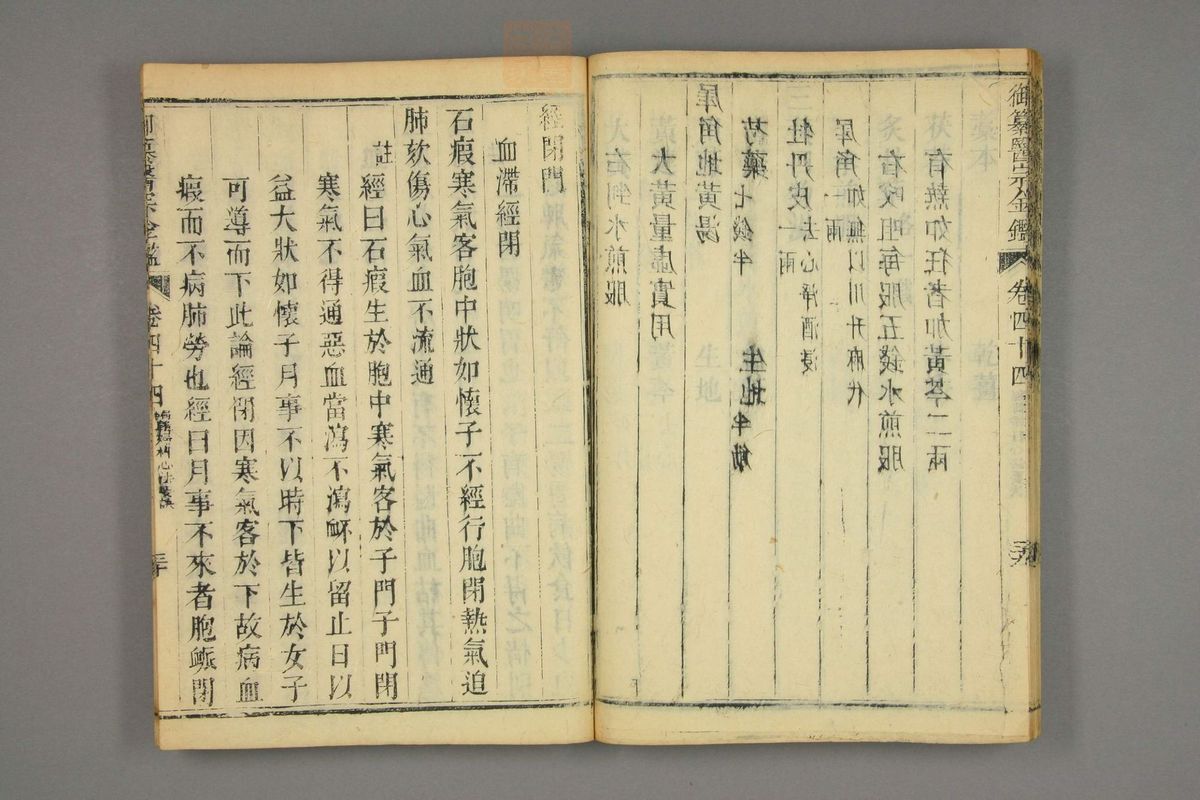 御纂醫宗金鑑 卷四十四
有熱如狂者加黃芩二兩
右㕮咀每服五錢水煎服
犀角如無以川升麻代
一兩
牡丹皮去心淨酒浸
一兩
芍藥七錢半 生地半觔
犀角地黃湯
大黃量虛實用
右剉水煎服
經閉門
血滯經閉
石瘕寒氣客胞中狀如懷子不經行胞閉熱氣迫
肺欬傷心氣血不流通
註經曰石瘕生於胞中寒氣客於子門子門閉
寒氣不得通惡血當瀉不瀉衃以留止日以
益大狀如懷子月事不以時下皆生於女子
可導而下此論經閉因寒氣客於下故病血
瘕而不病肺勞也經曰月事不來者胞衇閉
御纂醫宗金鑑 卷四十四 婦科心法要訣 三十